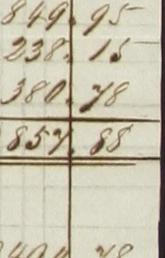 849.95
238.15
380.78
857.88